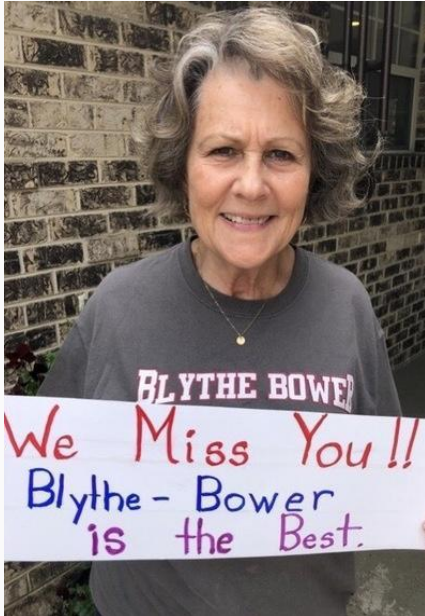 BLYTHE BOWER
We Miss You!!
Blythe-Bower
is the Best.